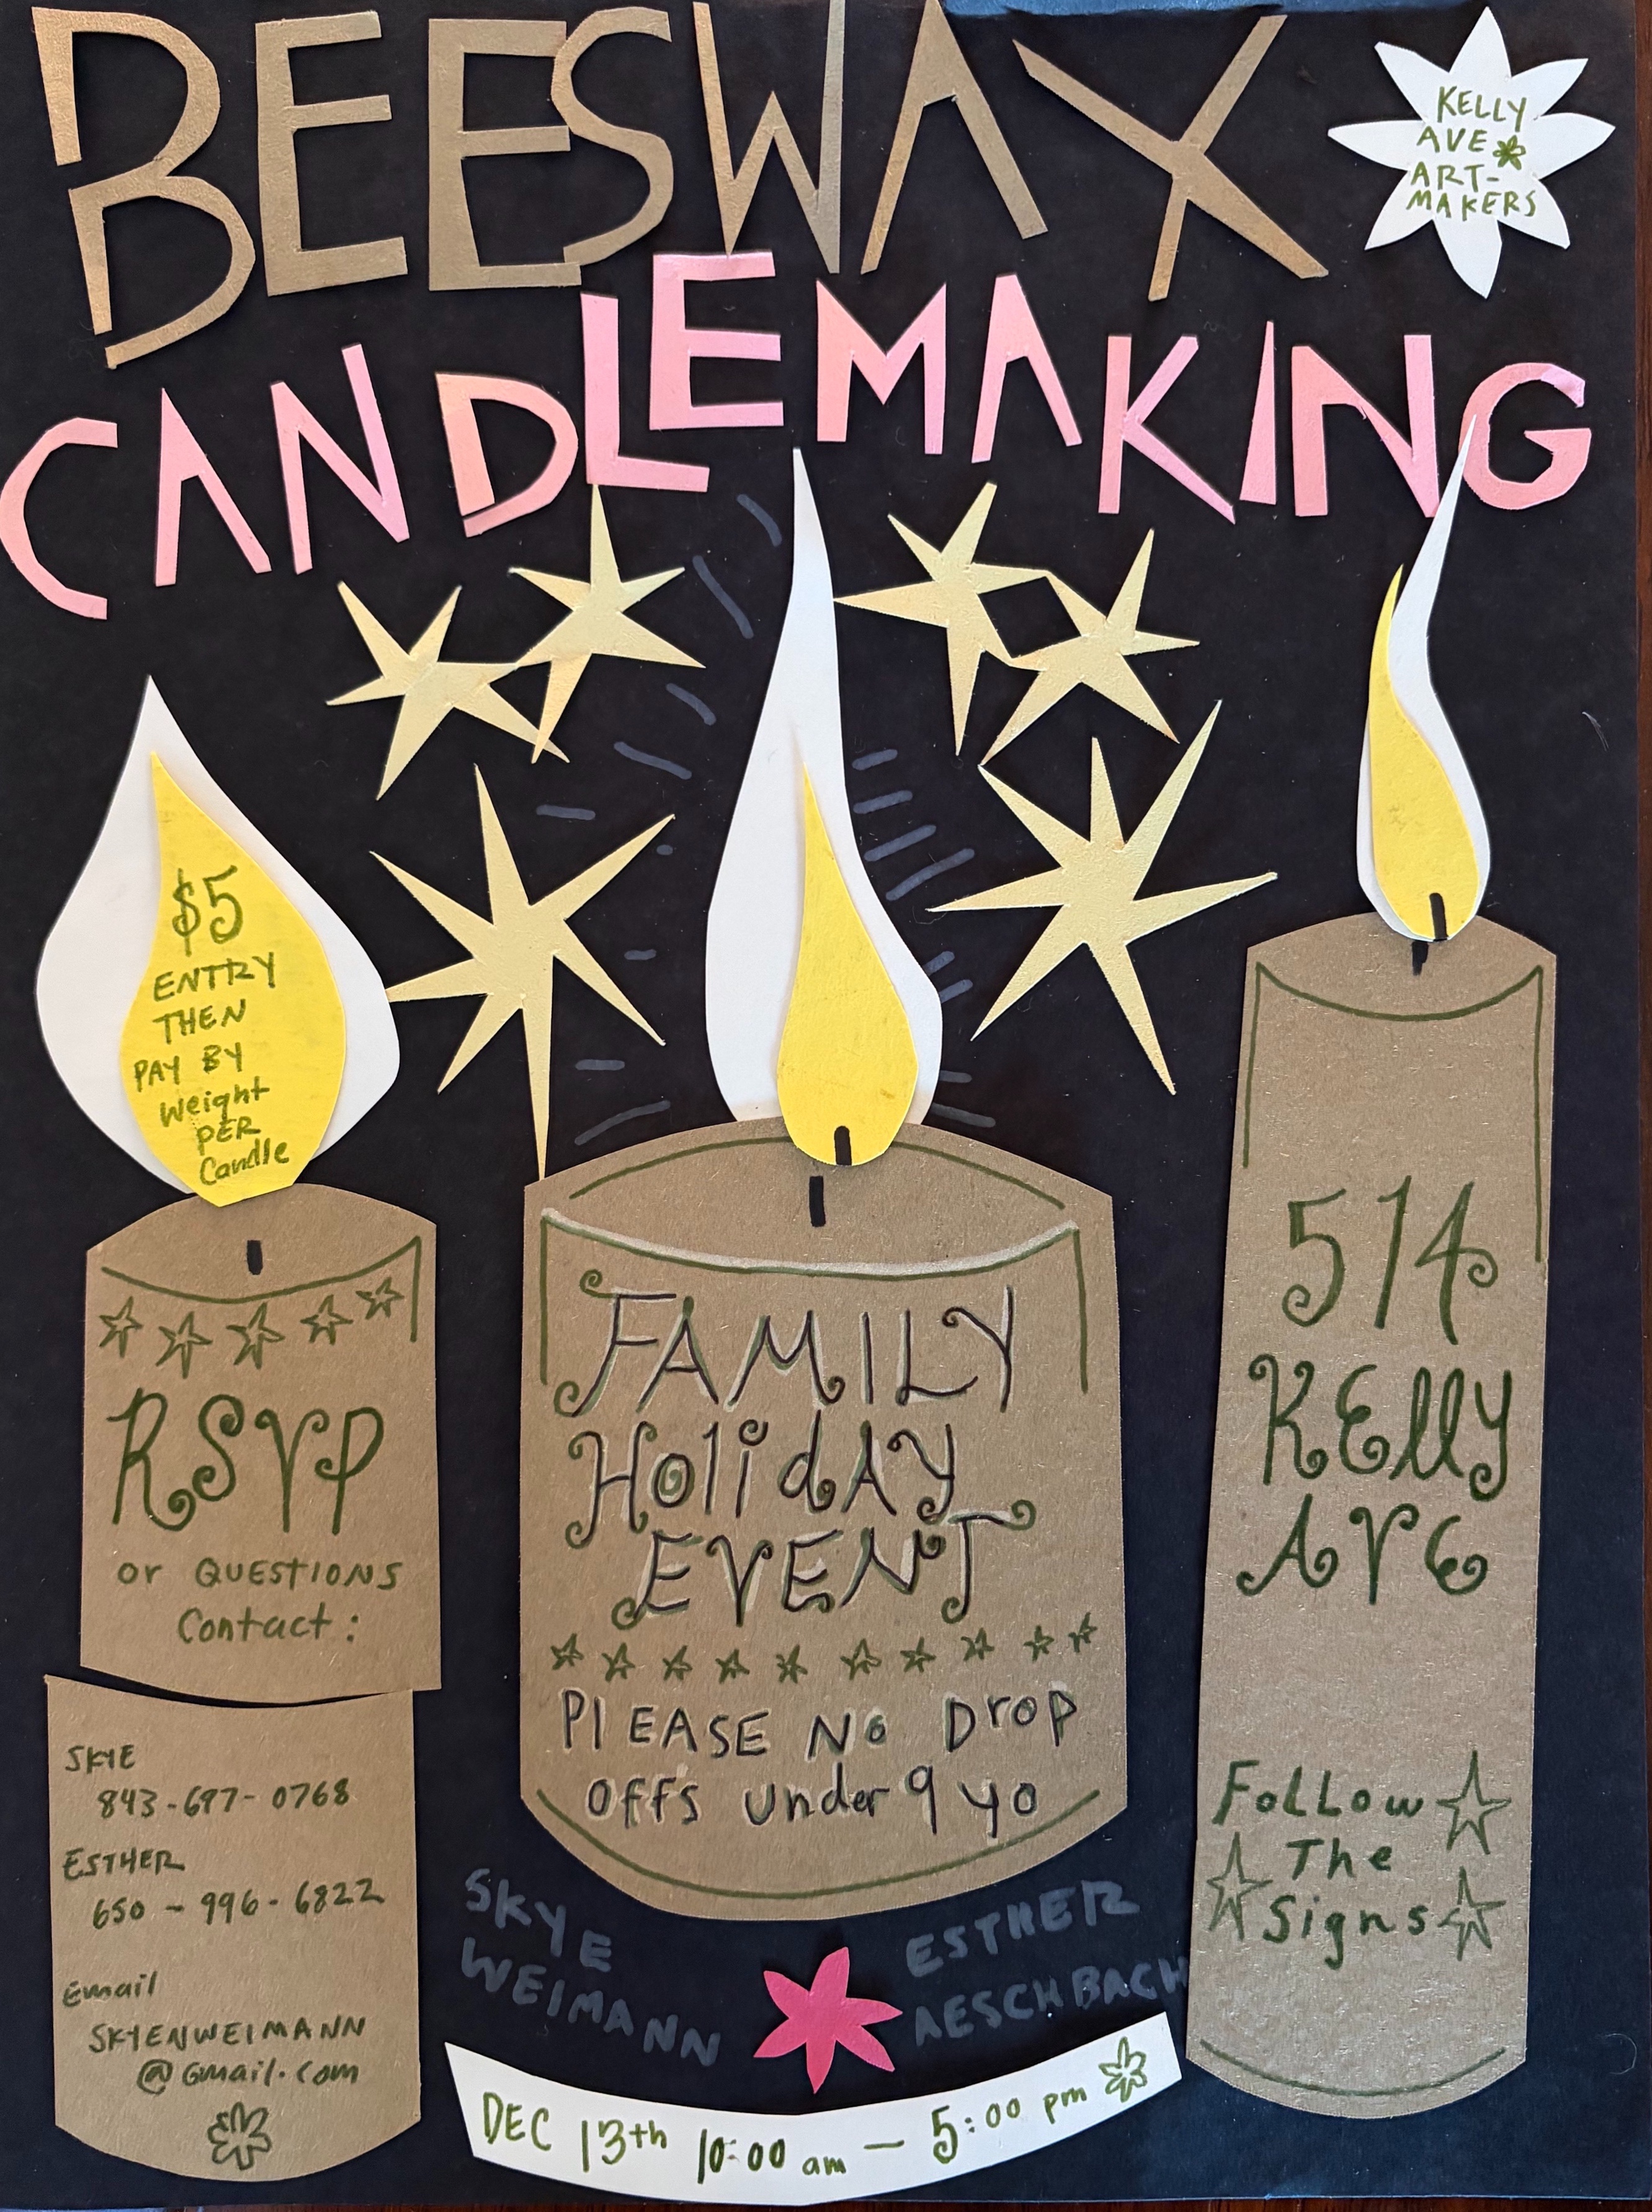 BEESWAX
KELLY
AVE
ART-
MAKERS
CANDLEMAKING
$5
ENTRY
THEN
PAY BY
Weight
PER
Candle
RSVP
or QUESTIONS
Contact:
SKYE
843-697-0768
ESTHER
650-996-6822
Email
SKYENWEIMANN
@Gmail.com
FAMILY
HoliDAY
EVENT
PlEASE No Drop
OffS Under 9 yo
514
KElly
AVE
FoLLow
The
Signs
SKYE
WEIMANN
ESTHER
AESCHBACH
DEC 13th 10:00 am - 5:00 pm